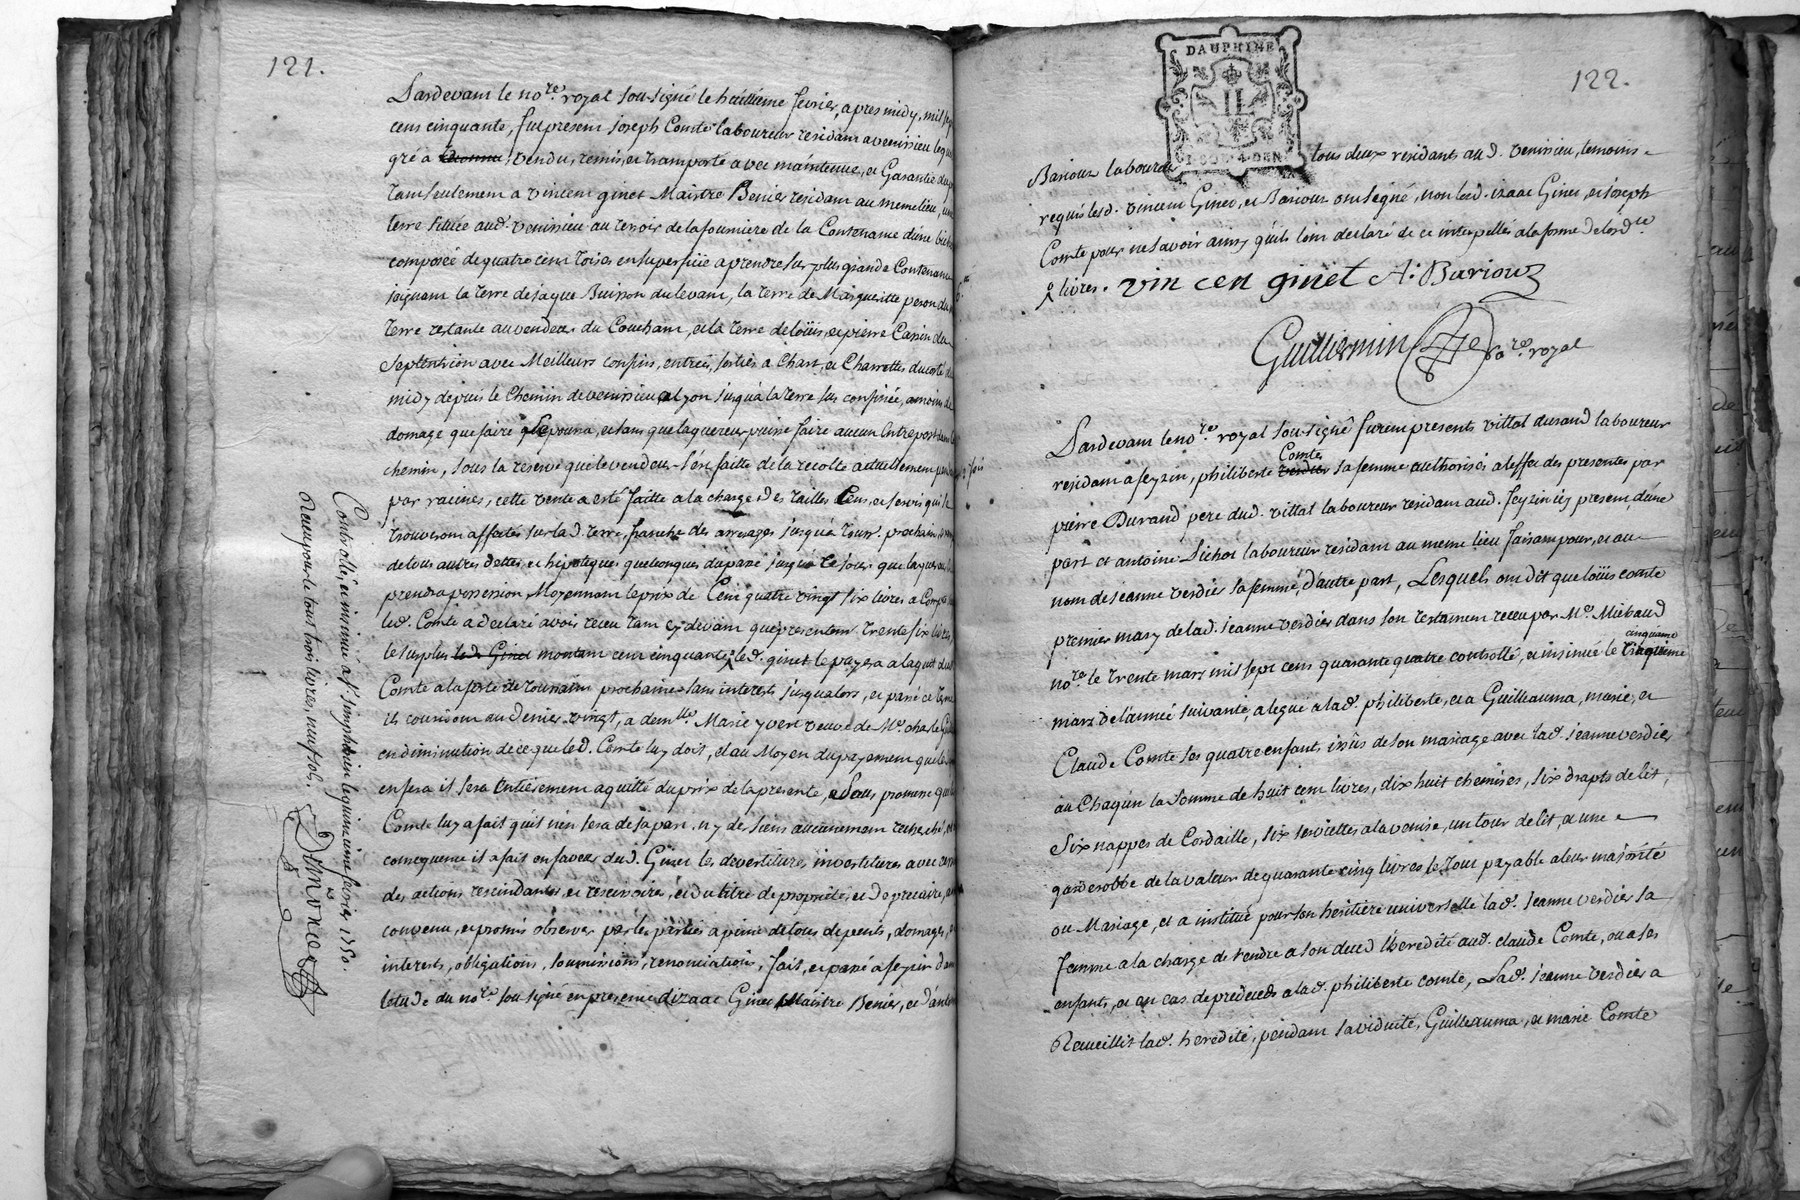 121.
Pardevant le no.re royal sou-signé le huitième fevrier, apres midy, mil sept
cens cinquante, fut present joseph Comte laboureur residant a venissieu lequel
gré a vendu, remis, et transporté avec maintenue, et Garantie du
tant seulement a vincent ginet Maitre Benier residant au meme lieu, une
terre située aud. venissieu au terroir de la fourniere de la Contenance d'une
composée de quatre cens toises en superficie a prendre sur plus grande Contenance
joignant la terre de jaque Buisson du levant, la terre de Margueritte peron du
terre restante au vendeur du Couchant, et la terre de loüis, et pierre Cassin du
septentrion avec Meilleurs confins, entrées, sorties a Chars, et Charrettes du costé du
midy depuis le Chemin de venissieu a lyon jusqu'à la terre sus confinée, a moins de
domage que faire se poura, et sans que l'aquereur puisse faire aucun Entrepost dans le
chemin, sous la reserve que le vendeur s'est faitte de la recolte actuellement
par racines, cette vente a esté faitte a la charge des tailles Cens, et servis qui se
trouveront affectés sur lad. terre, franche des arrerages jusqu'a Touss.t prochain,
de tous autres dettes, et hipoteques quelconques du passé jusqu'a Ce jour que l'aquereur
prendra possession Moyennant le prix de Cent quatre vingt six livres a Compte
led. Comte a declaré avoir receu tant cy devant que presentem.t trente six livres
le surplus montant cent cinquante led. ginet le payera a l'aquit dud.
Comte a la feste de Toussaints prochaine sans interests jusqu'alors, et passé ce terme
ils couriront au Denier vingt, a dem.lle Marie yvert veuve de M.e charle
en diminution de ce que led. Comte luy doit, et au Moyen du payement que led.
en fera il sera Entièrement aquitté du prix de la presente, et sous promesse que led.
Comte luy a fait qu'il n'en sera de sa part, ny des siens aucunement recherché, et
consequence il a fait en faveur dud. Ginet les devestitures, investitures avec
des actions rescindantes, et rescisoires, et du titre de proprieté, et de precaire,
convenu, et promis observer par les parties a peine de tous depents, domages, et
interests, obligations, soumissions, renonciations, fait, et passé a feyzin dans
l'etude du no.re sou-signé en presence d'izaac Ginet Maitre Benier, et d'antoine
Controllé, et insinué a s.t simphorien le quinzieme fevrier 1750.
Receu pour le tout trois livres, neuf sols.
122.
DAUPHINE
II
Barioux laboureur tous deux residants aud. venissieu, temoins
requis led. vincent Ginet, et Barioux ont signé, non led. izaac Ginet, et joseph
Comte pour ne savoir ainsy qu'ils l'ont declaré de ce interpellés a la forme de l'ord.ce
livres. vin cen ginet A. Barioux
Guillermin no.re royal
Pardevant le no.re royal sou-signé furent presents vittal durand laboureur
Comte
residant a feyzin, philiberte verdier sa femme authorisée a l'effet des presentes par
pierre Durand pere dud. vittal laboureur residant aud. feyzin icy present, d'une
part et antoine Pichot laboureur residant au meme lieu faisant pour, et au
nom de jeanne verdier sa femme, d'autre part, Lesquels ont dit que loüis comte
premier mary de lad. jeanne verdier dans son testament receu par M.e Miebaud
cinquieme
no.re le trente mars mil sept cens quarante quatre controllé, et insinué le
mars de l'année suivante, a legué a lad. philiberte, et a Guilleauma, marie, et
Claude Comte ses quatre enfants issûs de son mariage avec lad. jeanne verdier
au Chaqun la Somme de huit cent livres, dix huit chemises, six drapts de lit,
Six nappes de Cordaille, six serviettes a la venise, un tour de lit, et une
garderobbe de la valeur de quarante cinq livres le tout payable a leur majorité
ou Mariage, et a institué pour son heritière universelle lad. jeanne verdier sa
femme a la charge de rendre a son deced l'heredité aud. claude Comte, ou a ses
enfants, et en cas de predeceds a lad. philiberte comte, Lad. jeanne verdier a
Recueillit lad. heredité, pendant sa viduité, Guilleauma, et marie Comte